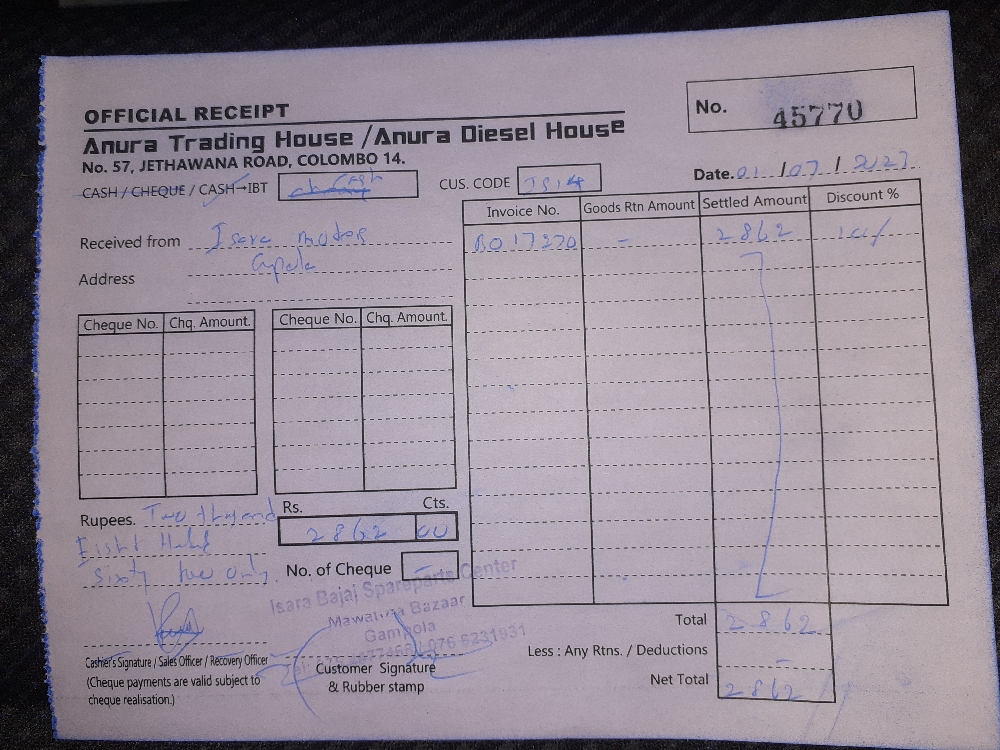 OFFICIAL RECEIPT
No. 45770
Anura Trading House / Anura Diesel House
No. 57, JETHAWANA ROAD, COLOMBO 14.
CASH / CHEQUE / CASH→IBT Cash
CUS. CODE
Date. 01 / 07 / 2023
Invoice No. Goods Rtn Amount Settled Amount Discount %
Received from Isara motors
RO17270 - 2862
Address
Cheque No. Chq. Amount. Cheque No. Chq. Amount.
Rupees. Two thousand
Rs. Cts.
2862 00
Eight
sixty two only.
No. of Cheque -
Isara Bajaj Spareparts Center
Mawatura Bazaar
Gampola
076 6231931
Total 2862
Cashier's Signature / Sales Officer / Recovery Officer
(Cheque payments are valid subject to
cheque realisation.)
Customer Signature
& Rubber stamp
Less : Any Rtns. / Deductions -
Net Total 2862